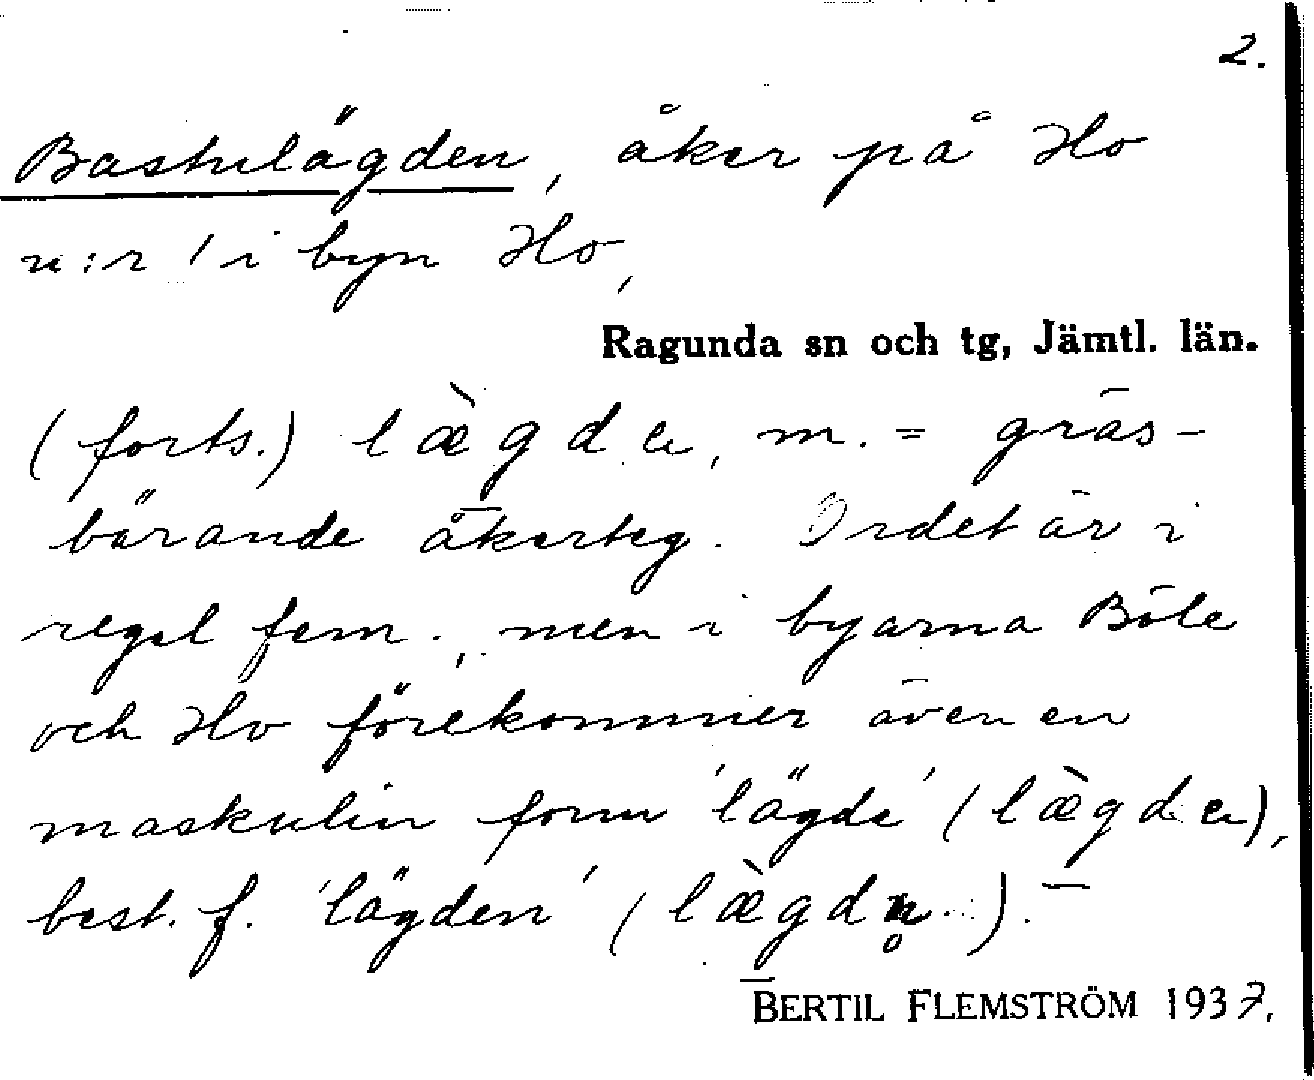 2.
Bastulägden, åker på Ho
n:r 1 i byn Ho,
Ragunda sn och tg, Jämtl. län.
(forts.) læ̀gde, m. = gräs-
bärande åkerteg. Ordet är i
regel fem., men i byarna Böle
och Ho förekommer även en
maskulin form 'lägde' (læ̀gde),
best. f. 'lägden' (læ̀gdn̥). —
BERTIL FLEMSTRÖM 1937.